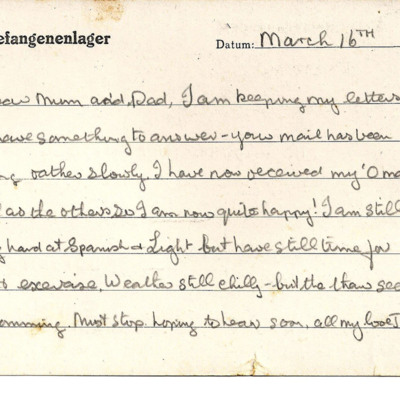 efangenenlager
Datum: March 16TH
Mum and Dad, I am keeping my letters
have something to answer - your mail has been
rather slowly. I have now received my 'O
as the others so I am now quite happy! I am still
hard at Spanish & Light but have still time for
exercise. Weather still chilly - but the thaw
comming. Must stop hoping to hear soon, all my love